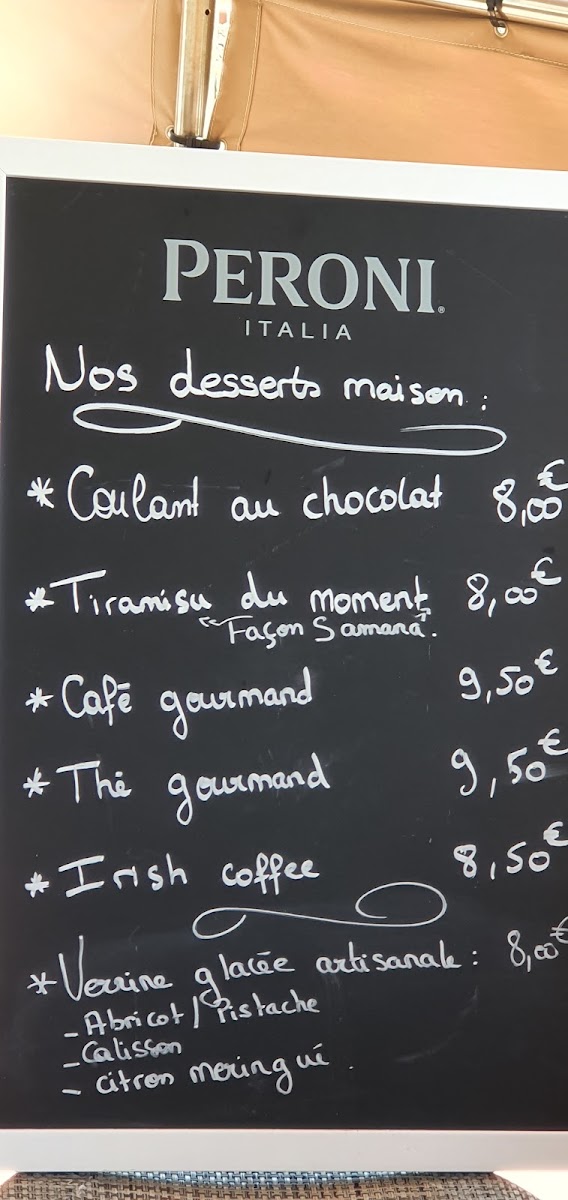 PERONI®
ITALIA
Nos desserts maison :
* Coulant au chocolat 8,00€
* Tiramisu du moment 8,00€
"Façon Samana".
* Café gourmand 9,50€
* Thé gourmand 9,50€
* Irish coffee 8,50€
* Verrine glacée artisanale : 8,00€
- Abricot / Pistache
- Calisson
- citron meringué.